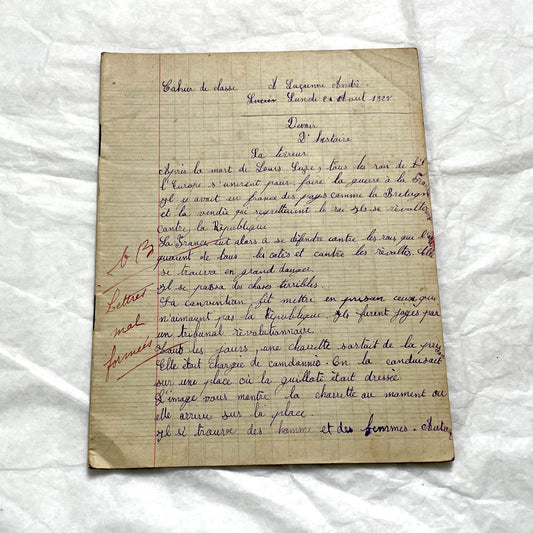 Cahier de classe A Laguenne André
Lucien Lundi 21 Aout 192
Devoir
D'histoire
La terreur
Après la mort de Louis Seize, tous les rois de
l'Europe s'unirent pour faire la guerre à la
Il y avait en france des pays comme la Bretagne
et la vendée qui regrettaient le roi ils se révolter
contre la République
La France eut alors a se défendre contre les rois que l'
quaient de tous les cotés et contre les révoltes. Elle
se trouva en grand danger.
Il se passa des choses terribles.
La convention, fit mettre en prison ceux qui
n'aimaient pas la République. Ils furent jugés par
un tribunal révolutionnaire.
Touts les jours, une charrette sortait de la
Elle était chargée de comdannés. On la conduisait
sur une place où la guillote était dressée
L'image vous montre la charrette au moment ou
elle arrive sur la place.
Il si trouve des homme et des femmes.
N B
Lettres
mal
formées